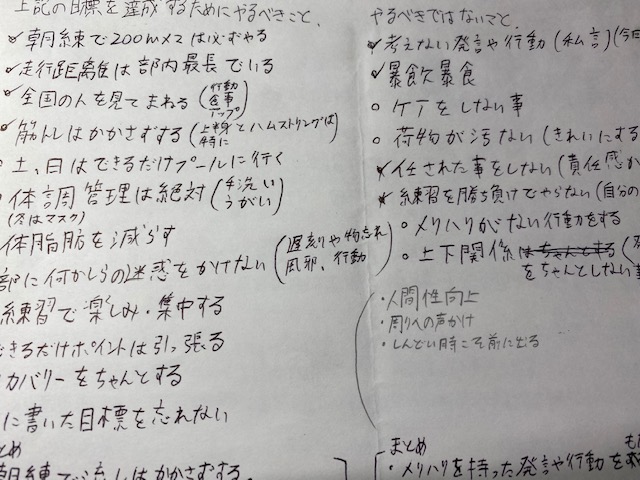 上記の目標を達成するためにやるべきこと、
朝練で200m×2は必ずやる
走行距離は部内最長でいる
全国の人を見てまねる(行動 食事 アップ)
筋トレはかかさずする(上半身とハムストリングは特に)
土、日はできるだけプールに行く
体調管理は絶対(手洗い うがい)
(冬はマスク)
体脂肪を減らす
部に何かしらの迷惑をかけない(遅刻や物忘れ 風邪、行動)
練習で楽しみ・集中する
できるだけポイントは引っ張る
カバリーをちゃんとする
に書いた目標を忘れない
とめ
朝練で流しはかかさずする。
やるべきではないこと、
考えない発言や行動(私言)(今日
暴飲暴食
ケアをしない事
荷物が汚ない(きれいにする
任された事をしない(責任感か
練習を勝ち負けでやらない(自分の
メリハリがない行動をする
上下関係はちゃとする
をちゃんとしない事
・人間性向上
・周りへの声かけ
・しんどい時こそ前に出る
まとめ
・メリハリを持った発言や行動を